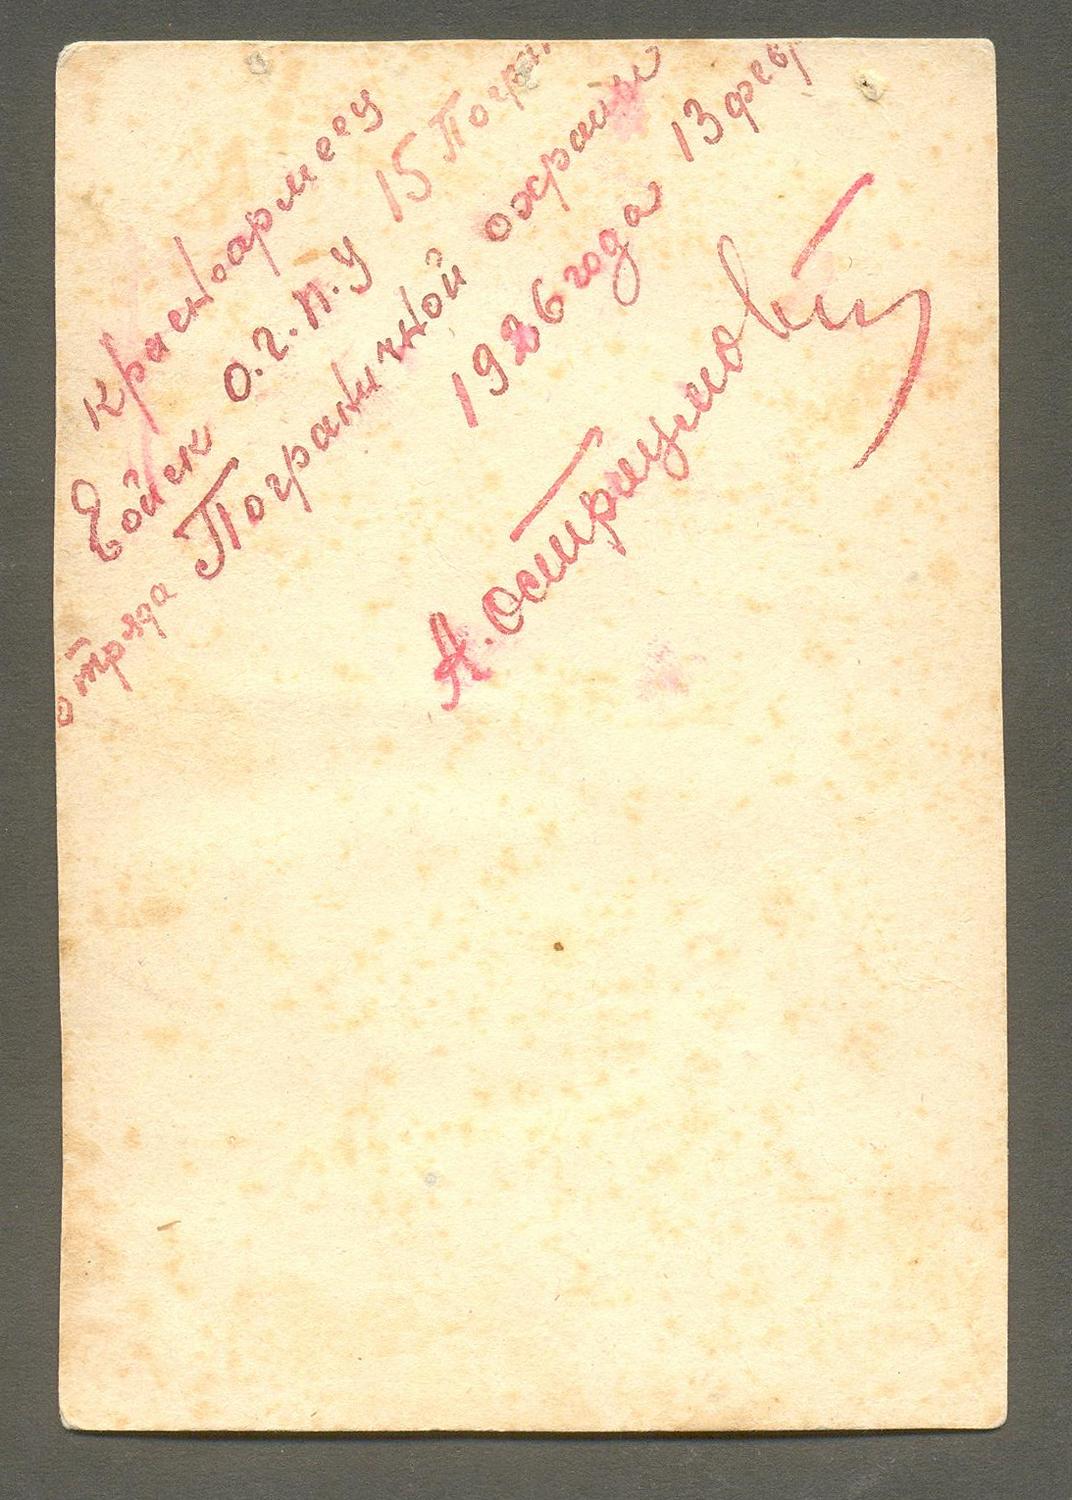 красноармеец
Войск О.Г.П.У 15 Погран
отряда Пограничной охраны
1926 года 13 февр